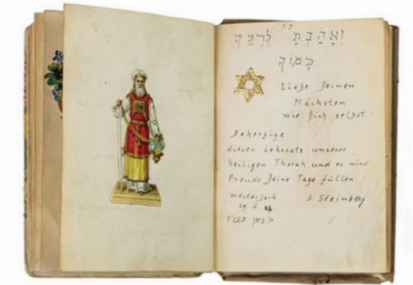 ואהבת לרעך
כמוך
Liebe Deinen
Nächsten
wie Dich selbst!
Beherzige
diesen Lehrsatz unserer
heiligen Thorah und es wird
Freude Deine Tage füllen.
Westerbork S. Steinberg